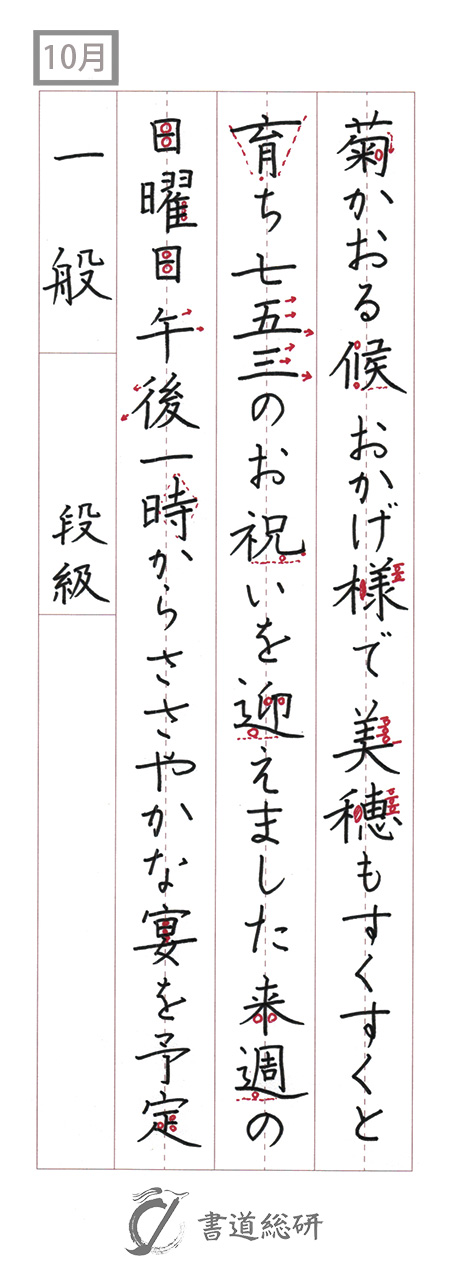 10月
菊かおる候 おかげ様で 美穂もすくすくと
育ち 七五三のお祝いを迎えました 来週の
日曜日 午後一時からささやかな宴を予定
一般 段級
書道総研